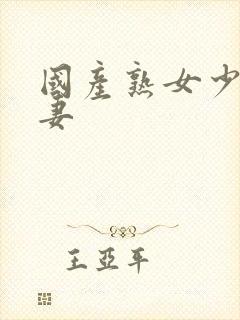 國產熟女少
妻
王亞平